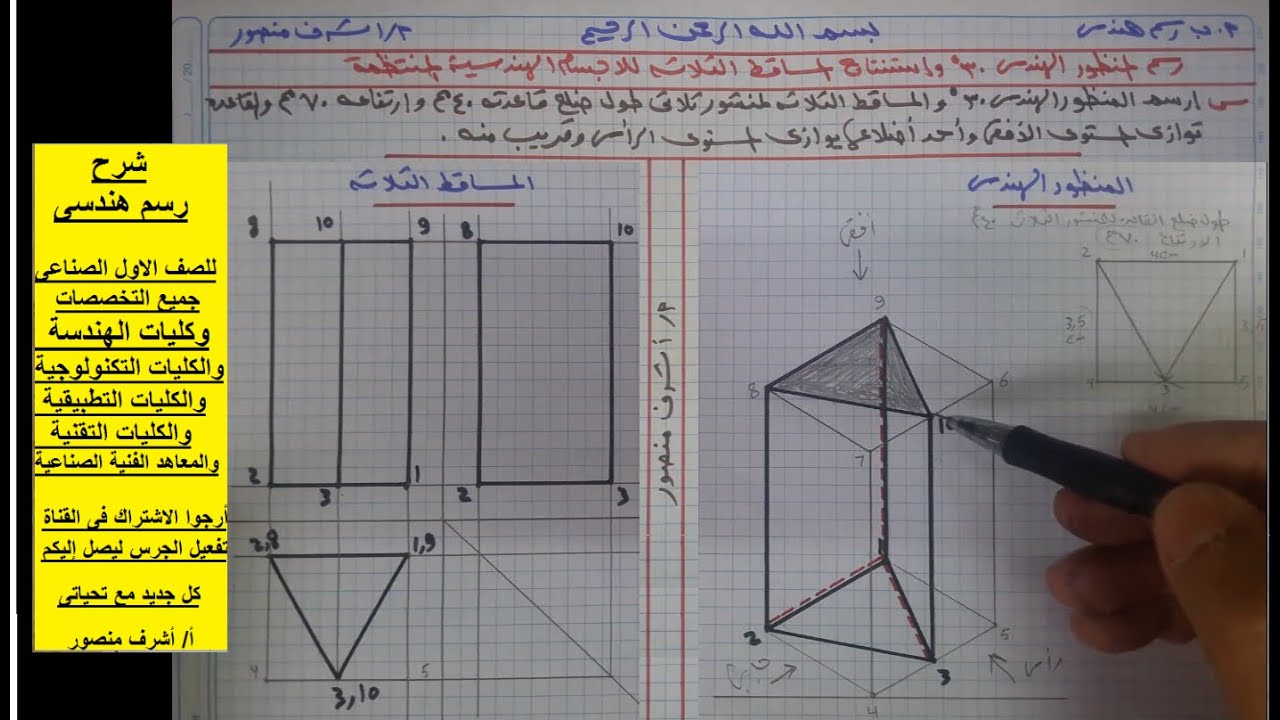 م. ب رسم هندسى
بسم الله الرحمن الرحيم
م/ اشرف منصور
رسم المنظور الهندسى ٣٠° واستنتاج المساقط الثلاثه للاجسام الهندسية المنتظمة
س ارسم المنظور الهندسى ٣٠° والمساقط الثلاثه لمنشور ثلاثى طول ضلع قاعدته ٤٠مم وارتفاعه ٧٠مم والقاعده
توازى المستوى الأفقى وأحد أضلاعها يوازى المستوى الرأسى وقريب منه .
شرح
رسم هندسى
للصف الاول الصناعى
جميع التخصصات
وكليات الهندسة
والكليات التكنولوجية
والكليات التطبيقية
والكليات التقنية
والمعاهد الفنية الصناعية
أرجوا الاشتراك فى القناة
تفعيل الجرس ليصل إليكم
كل جديد مع تحياتى
أ/ أشرف منصور
المنظور الهندسى
طول ضلع القاعدة للمنشور الثلاثى ٤٠مم
الارتفاع ٧٠مم
2 4cm 1
3,5
cm
4 3 5
أفقى
9
8 6
10
7
2 5
3
4
جانبى
رأسى
م/ أشرف منصور
المساقط الثلاثه
8 10 9 8 10
2 3 1 2 3
2,8 1,9
4 5
3,10